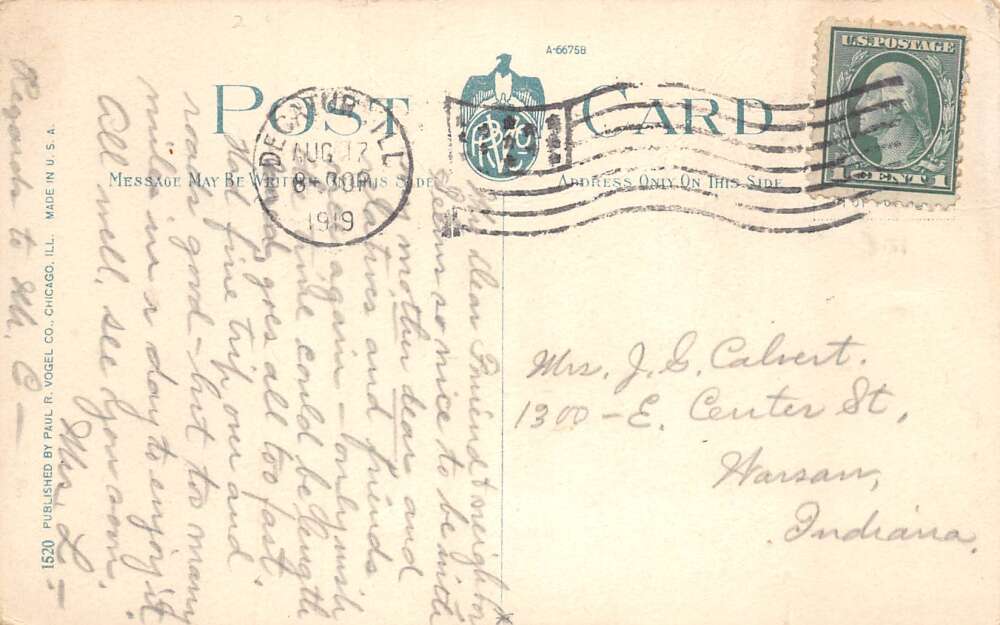 A-66758
POST CARD
MESSAGE MAY BE WRITTEN ON THIS SIDE
ADDRESS ONLY ON THIS SIDE
U.S. POSTAGE
1 CENT 1
DECATUR, ILL.
AUG 17
8-30P
1919
My dear Friend & neighbor
Seems so nice to be with
my mother dear and
relatives and friends
again - only wish
the time could be length
ened, goes all too fast.
Had fine trip over and
roads good - but too many
mile in a day to enjoy it.
All well, see you soon.
Mrs. L -
Regards to Mr. C -
Mrs. J. G. Calvert.
1300 - E. Center St,
Warsaw,
Indiana.
1520 PUBLISHED BY PAUL R. VOGEL CO., CHICAGO, ILL. MADE IN U.S.A.